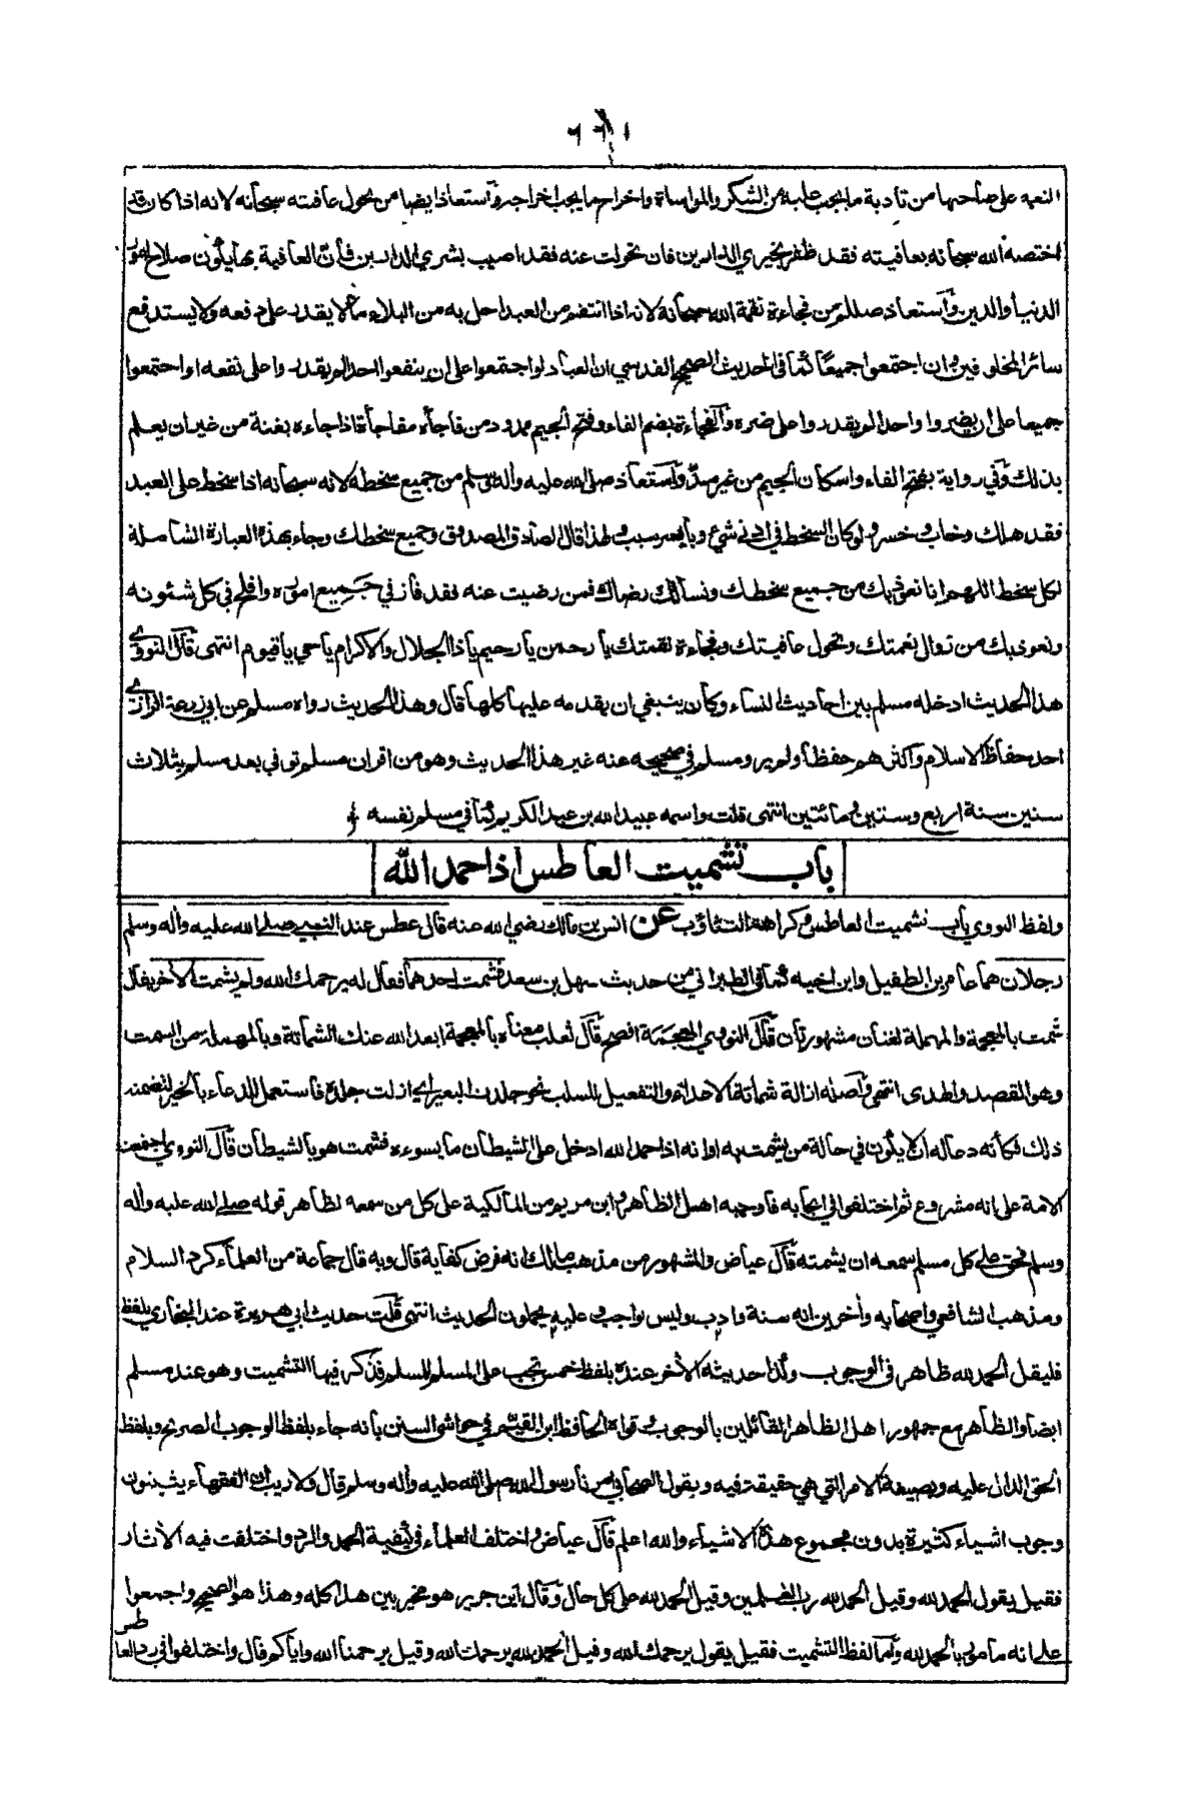 النعمة على صاحبها من تأدية ما يجب عليه من الشكر والمواساة واخراج ما يجب اخراجه وآستعاذ ايضا من تحول عافته سبحانه لانه اذا كان قد
اختصه الله سبحانه بعافيته فقد ظفر بخيري الدارين فان تحولت عنه فقد اصيب بشري الدارين فان العافية بها يكون صلاح امور
الدنيا والدين وآستعاذ صللم من فجاءة نقمة الله سبحانه لانه اذا انتقم من العبد احل به من البلاء ما لا يقدر على دفعه ولا يستدفع
سائر المخلوقين وان اجتمعوا جميعًا كما في الحديث الصحيح القدسي ان العباد لو اجتمعوا على ان ينفعوا احدا لم يقدروا على نفعه او اجتمعوا
جميعا على ان يضروا واحدا لم يقدروا على ضره وآلفجاءة بضم الفاء وفتح الجيم ممدود من فاجأه مفاجأة اذا جاءه بغتة من غير ان يعلم
بذلك وفي رواية بفتح الفاء واسكان الجيم من غير مدّ وآستعاذ صلى الله عليه وآله وسلم من جميع سخطه لانه سبحانه اذا سخط على العبد
فقد هلك وخاب وخسر ولو كان السخط في ادنى شيء وبأيسر سبب ولهذا قال الصادق المصدوق وجميع سخطك وجاء بهذه العبارة الشاملة
لكل سخط اللهم انا نعوذ بك من جميع سخطك ونسألك رضاك فمن رضيت عنه فقد فاز في جميع اموره وافلح في كل شئونه
ونعوذ بك من زوال نعمتك وتحول عافيتك وفجاءة نقمتك يا رحمن يا رحيم يا ذا الجلال والاكرام يا حي يا قيوم انتهى قآل النووي
هذا الحديث ادخله مسلم بين احاديث النساء وكان ينبغي ان يقدمه عليها كلها قال وهذا الحديث رواه مسلم عن ابي زرعة الرازي
احد حفاظ الاسلام وآكثرهم حفظا ولم يرو مسلم في صحيحه عنه غير هذا الحديث وهو من اقران مسلم توفي بعد مسلم بثلاث
سنين سنة اربع وستين ومائتين انتهى قلت واسمه عبيد الله بن عبد الكريم كما في مسلم نفسه
باب تشميت العاطس اذا حمد الله
ولفظ النووي باب تشميت العاطس وكراهة التثاؤب عن انس بن مالك رضي الله عنه قال عطس عند النبي صلى الله عليه وآله وسلم
رجلان هما عامر بن الطفيل وابن اخيه كما في الطبراني من حديث سهل بن سعد فشمت احدهما فقال له يرحمك الله ولم يشمت الآخر يقال
شمت بالمعجمة والمهملة لغتان مشهورتان قآل النووي المعجمة افصح قآل ثعلب معناه بالمعجمة ابعد الله عنك الشماتة وبالمهملة من السمت
وهو القصد والهدى انتهى وآصله ازالة شماتة الاعداء والتفعيل للسلب نحو جلدت البعير اي ازلت جلده فاستعمل للدعاء بالخير لتضمنه
ذلك فكأنه دعا له ان لا يكون في حالة من يشمت به او انه اذا حمد الله ادخل على الشيطان ما يسوءه فشمت هو بالشيطان قآل النووي اجتمعت
الامة على انه مشروع ثم اختلفوا في ايجابه فأوجبه اهل الظاهر وابن مريم من المالكية على كل من سمعه لظاهر قوله صلى الله عليه وآله
وسلم فحق على كل مسلم سمعه ان يشمته قآل عياض والمشهور من مذهب مالك انه فرض كفاية قال وبه قال جماعة من العلماء كرد السلام
ومذهب الشافعي واصحابه وآخرين انه سنة وادب وليس بواجب ويحملون الحديث انتهى قلت حديث ابي هريرة عند البخاري بلفظ
فليقل الحمد لله ظاهر في الوجوب وكذا حديثه الآخر عنده بلفظ خمس تجب على المسلم للمسلم فذكر فيها التشميت وهو عند مسلم
ايضا والظاهر مع جمهور اهل الظاهر القائلين بالوجوب قواه الحافظ ابن القيم في حواشي السنن بانه جاء بلفظ الوجوب الصريح وبلفظ
الحق الدال عليه وبصيغة الامر التي هي حقيقة فيه وبقول الصحابي امرنا رسول الله صلى الله عليه وآله وسلم قال ولا ريب ان الفقهاء يثبتون
وجوب اشياء كثيرة بدون مجموع هذه الاشياء والله اعلم قآل عياض واختلف العلماء في كيفية الحمد والرد واختلفت فيه الآثار
فقيل يقول الحمد لله وقيل الحمد لله رب العلمين وقيل الحمد لله على كل حال وقال ابن جرير هو مخير بين هذا كله وهذا هو الصحيح واجمعوا
على انه مأمور بالحمد لله وآما لفظ التشميت فقيل يقول يرحمك الله وقيل الحمد لله يرحمك الله وقيل يرحمنا الله واياكم قال واختلفوا في رد العاطس